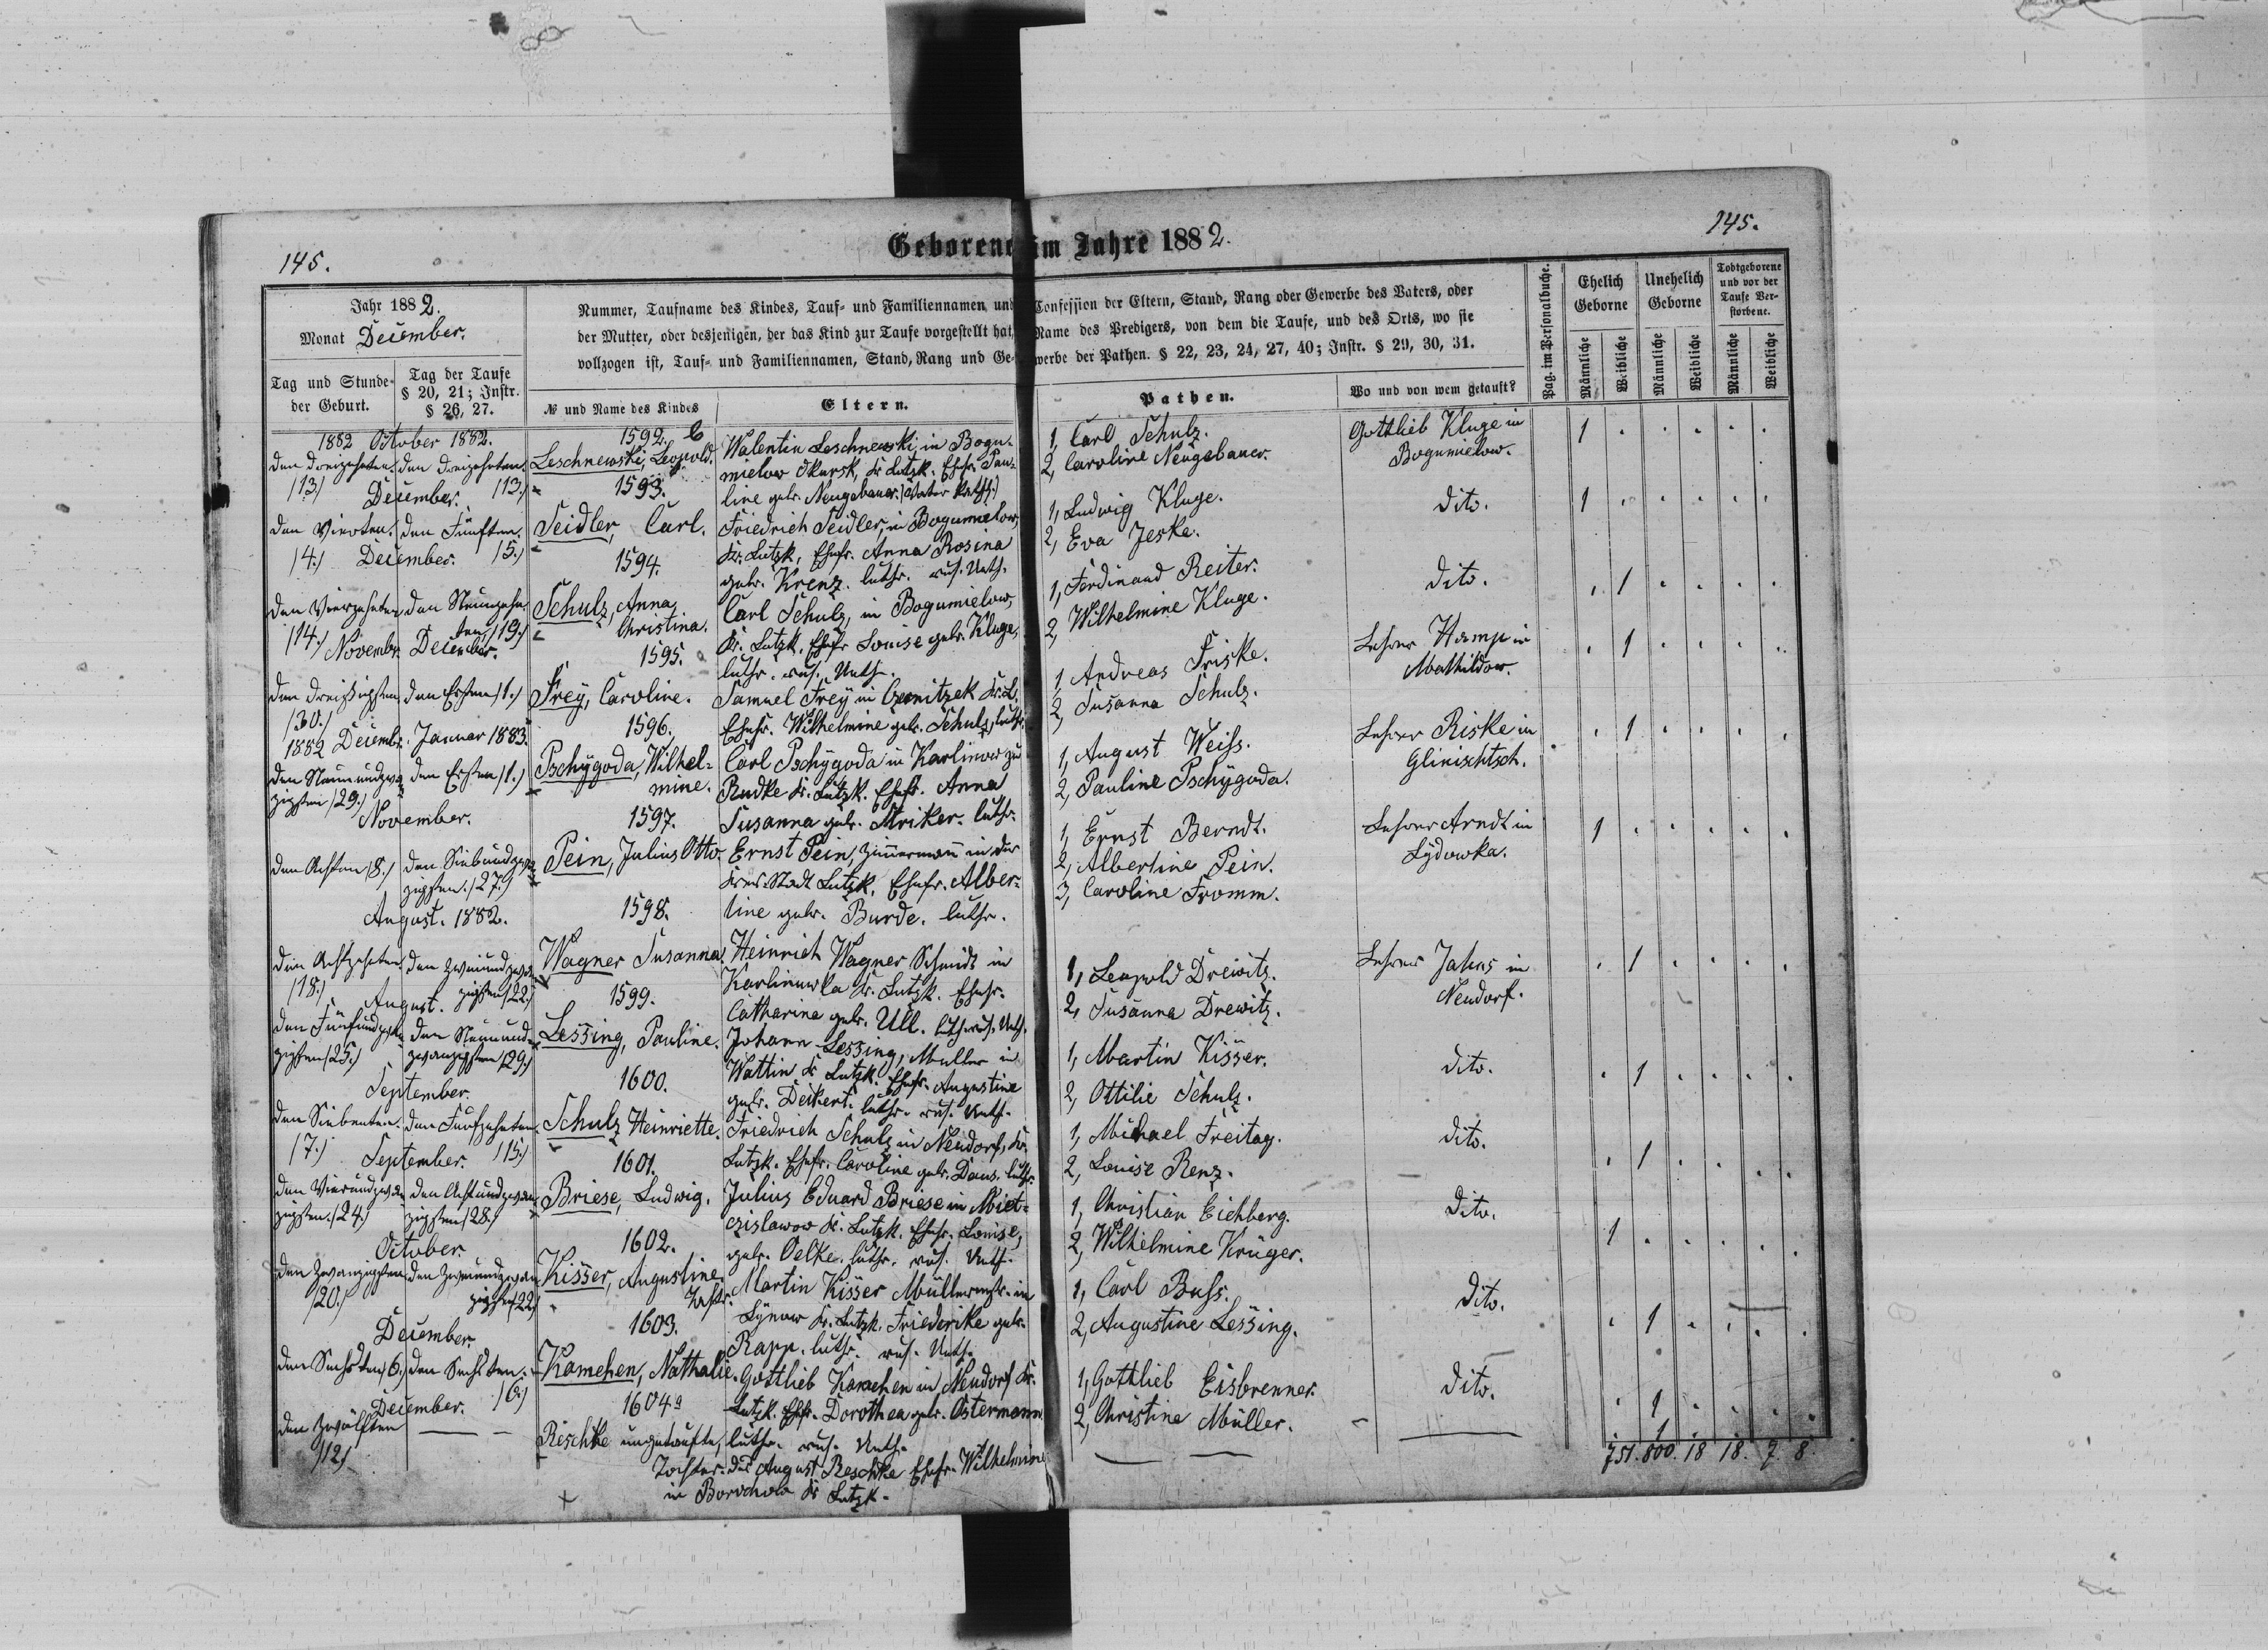 145.
Geborene im Jahre 1882.
145.
Jahr 1882.
Monat December.
Tag und Stunde der Geburt.
Tag der Taufe § 20, 21; Instr. § 26, 27.
Nummer, Taufname des Kindes, Tauf- und Familiennamen und Confession der Eltern, Stand, Rang oder Gewerbe des Vaters, oder
der Mutter, oder desjenigen, der das Kind zur Taufe vorgestellt hat, Name des Predigers, von dem die Taufe, und des Orts, wo sie
vollzogen ist, Tauf- und Familiennamen, Stand, Rang und Gewerbe der Pathen. § 22, 23, 24, 27, 40; Instr. § 29, 30, 31.
№ und Name des Kindes
Eltern.
Pathen.
Wo und von wem getauft?
Pag. im Personalbuche.
Ehelich Geborne
Unehelich Geborne
Todtgeborene und vor der Taufe Verstorbene.
Männliche
Weibliche
Männliche
Weibliche
Männliche
Weibliche
1882 October 1882.
den dreizehnten /13./
den dreizehnten /13./
1592.
Leschnewski, Leopold.
Walentin Leschnewski, in Bogu-
mielow Okursk, Kr. Lutzk. Ehefr. Pau-
line geb. Neugebauer. (Vater kath.)
1, Carl Schulz.
2, Caroline Neugebauer.
Gottlieb Kluge in
Bogumielow.
December.
den Vierten /4./
den Fünften /5./
1593.
Seidler, Carl.
Friedrich Seidler, in Bogumielow,
Kr. Lutzk, Ehefr. Anna Rosina
geb. Krenz. luthr. rus. Unth.
1, Ludwig Kluge.
2, Eva Jeske.
dito.
December.
den Vierzehnten /14./
den Neunzehnten /19./
1594.
Schulz, Anna
Christina.
Carl Schulz, in Bogumielow,
Kr. Lutzk. Ehefr. Louise geb. Kluge,
luthr. rus. Unth.
1, Ferdinand Reiter.
2, Wilhelmine Kluge.
dito.
Novembr. December.
den dreißigsten /30./
den Ersten /1./
1595.
Frey, Caroline.
Samuel Frey in Kr. L.
Ehefr. Wilhelmine geb. Schulz, luthr.
1, Andreas Friske.
2, Susanna Schulz.
Lehrer Hamp in
Mathildow.
1882 Decembr. Januar 1883.
den Neunundzwanzigsten /29./
den Ersten /1./
1596.
Pschygoda, Wilhel-
mine.
Carl Pschygoda in Karlinow zu
Rudke Kr. Lutzk. Ehefr. Anna
Susanna geb. Striker. luthr.
1, August Weiss.
2, Pauline Pschygoda.
Lehrer Riske in
Glinischtsch.
November.
den Achten /8./
den Siebundzwanzigsten /27./
1597.
Pein, Julius Otto.
Ernst Pein, Zimmermann in der
Stadt Lutzk, Ehefr. Alber-
tine geb. Burde. luthr.
1, Ernst Berndt.
2, Albertine Pein.
3, Caroline Fromm.
Lehrer Arndt in
Lydowka.
August. 1882.
den Achtzehnten /18./
den Zweiundzwanzigsten /22./
1598.
Wagner Susanna.
Heinrich Wagner Schmidt in
Karlinuwka Kr. Lutzk. Ehefr.
Catharina geb. Ull. luth. rus. Unth.
1, Leopold Drewitz.
2, Susanna Drewitz.
Lehrer Jahns in
Neudorf.
August.
den Fünfundzwanzigsten /25./
den Neunundzwanzigsten /29./
1599.
Lessing, Pauline.
Johann Lessing, Müller in
Wattin Kr Lutzk. Ehefr. Augustine
geb. Deikert. luthr. rus. Unth.
1, Martin Kisser.
2, Ottilie Schulz.
dito.
September.
den Siebenten /7./
den Fünfzehnten /15./
1600.
Schulz Heinriette.
Friedrich Schulz in Neudorf, Kr.
Lutzk. Ehefr. Caroline geb. Daus. luthr.
1, Michael Freitag.
2, Louise Renz.
dito.
September.
den Vierundzwanzigsten /24./
den Achtundzwanzigsten /28./
1601.
Briese, Ludwig.
Julius Eduard Briese in Miet-
czislawow Kr. Lutzk. Ehefr. Louise,
geb. Oelke. luthr. rus. Unth.
1, Christian Eichberg.
2, Wilhelmine Krüger.
dito.
October.
den Zwanzigsten /20./
den Zweiundzwanzigsten /22./
1602.
Kisser, Augustine.
Martin Kisser Müllermstr. in
Lynow Kr. Lutzk. Friederike geb.
Rapp. luthr. rus. Unth.
1, Carl Buss.
2, Augustine Lessing.
dito.
December.
den Sechsten /6./
den Sechsten /6./
1603.
Kamchen, Nathalie.
Gottlieb Kamchen in Neudorf Kr.
Lutzk. Ehefr. Dorothea geb. Ostermann.
luthr. rus. Unth.
1, Gottlieb Eisbrenner.
2, Christine Müller.
dito.
December.
den Zwölften /12./
1604a
Reschke ungetaufte,
Tochter des August Reschke Ehefr. Wilhelmine
in Borochow Kr Lutzk.
751. 800. 18 18. 7. 8.